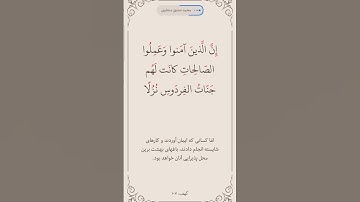 إِنَّ الَّذينَ آمَنوا وَعَمِلُوا
الصّالِحاتِ كانَت لَهُم
جَنّاتُ الفِردَوسِ نُزُلًا
امّا کسانی که ایمان آوردند و کارهای
شایسته انجام دادند، باغهای بهشت برین
محل پذیرایی آنان خواهد بود.
کهف، ۱۰۷